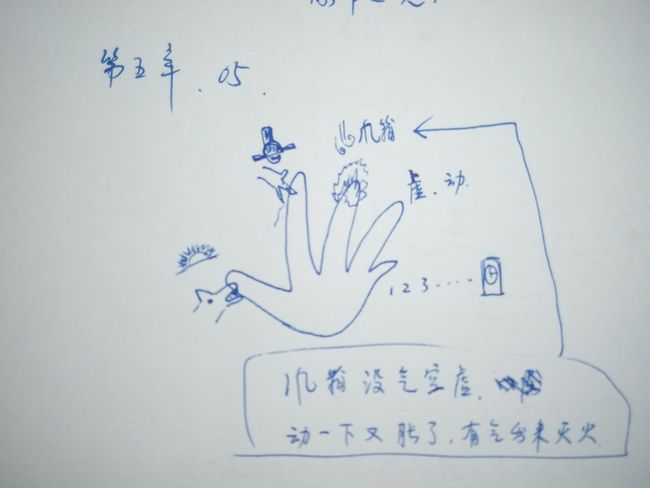 第五章. 05.
风箱
虚. 动.
123....
风箱没气空虚,
动一下又胀了,有气出来灭火.